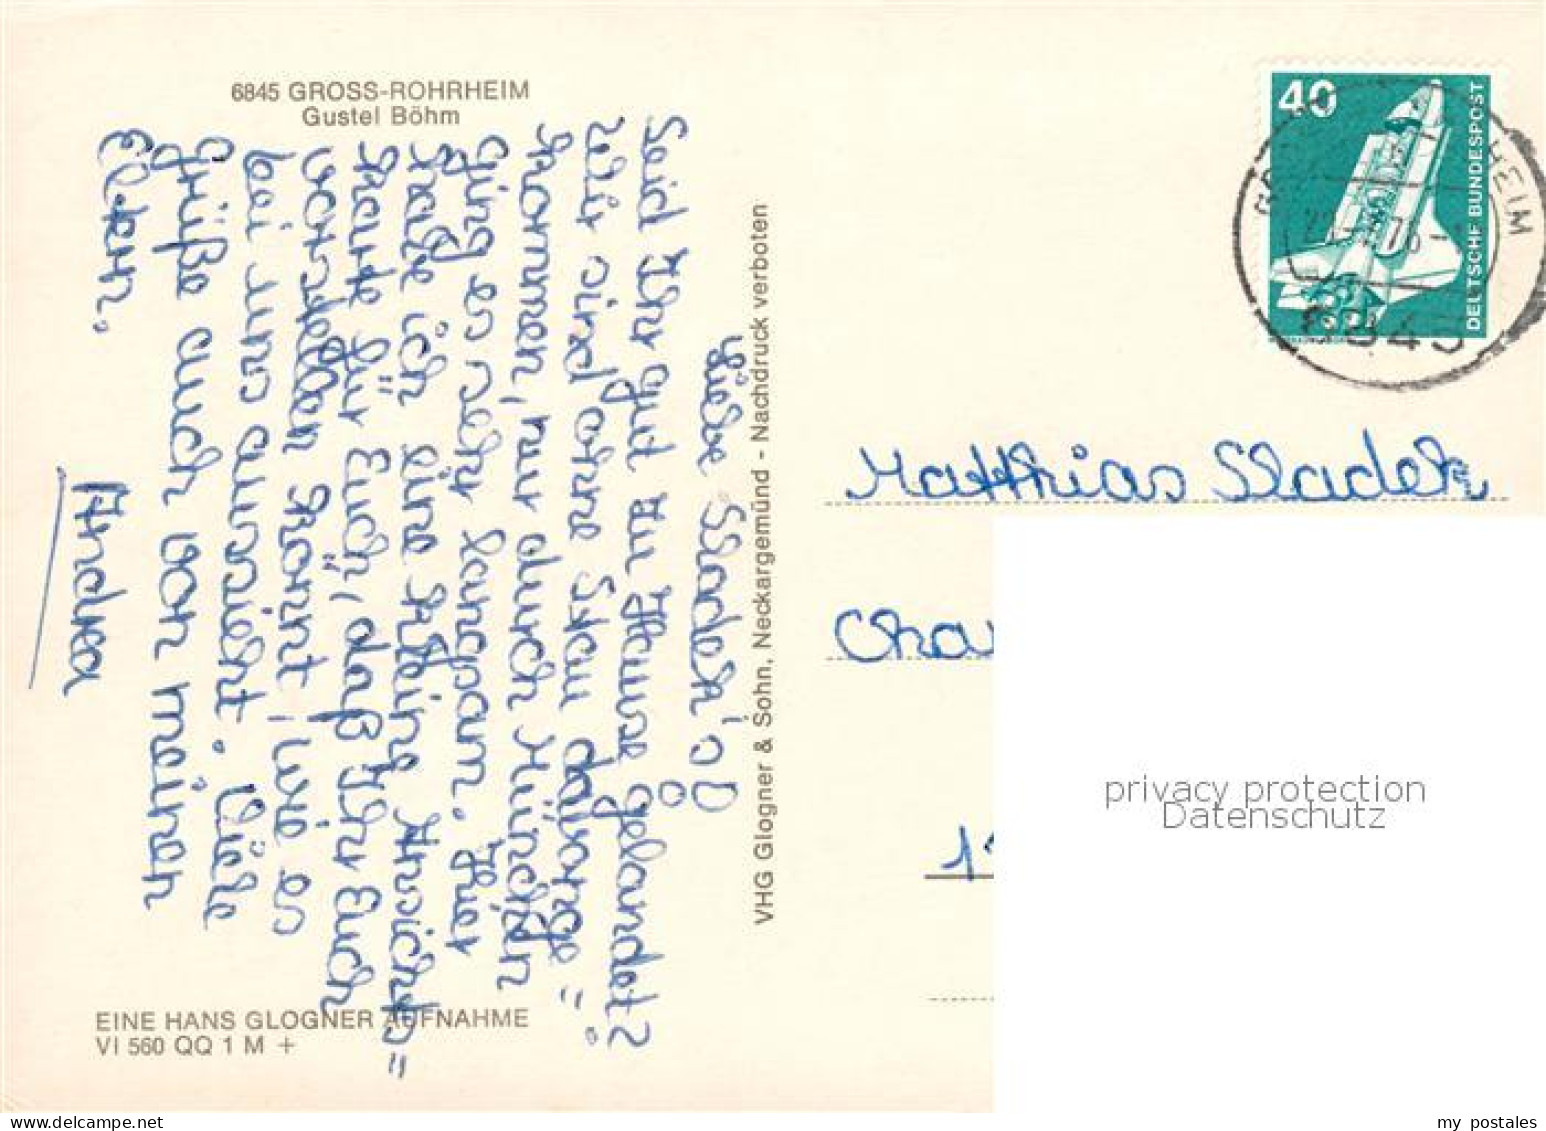 6845 GROSS-ROHRHEIM
Gustel Böhm
Liebe Sladek's!
Seid Ihr gut zu Hause gelandet?
Wir sind ohne Stau davonge=
kommen, nur durch München
ging es sehr langsam. Hier
habe ich eine kleine Ansichts=
karte für Euch, daß Ihr Euch
vorstellen könnt, wie es
bei uns aussieht. Viele
Grüße auch von meinen
Eltern.
Andrea
EINE HANS GLOGNER AUFNAHME
VI 560 QQ 1 M +
VHG Glogner & Sohn, Neckargemünd - Nachdruck verboten
40
DEUTSCHE BUNDESPOST
HEIM
6845
Matthias Sladek
Cha
1
privacy protection
Datenschutz
my postales